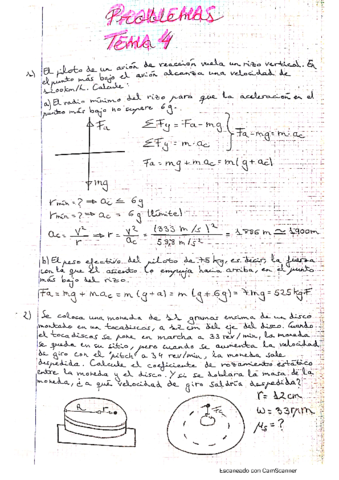 PROBLEMAS
TEMA 4
1) El piloto de un avión de reacción vuela un rizo vertical. En
el punto más bajo el avión alcanza una velocidad de
1200km/h. Calcule:
a) El radio mínimo del rizo para que la aceleración en el
puntos más bajo no supere 6g.
ΣFy = Fa - mg
ΣFy = m·ac
Fa - mg = m·ac
Fa = mg + mac = m(g + ac)
mg
rmin = ? ⇒ ac ≤ 6g
rmin = ? ⇒ ac = 6g (límite)
ac = v²/r ⇒ r = v²/ac = (333 m/s)²/58,8 m/s² = 1886 m ≃ 1900m
b) El peso efectivo del piloto de 75 kg, es decir, la fuerza
con la que el asiento lo empuja hacia arriba, en el punto
más bajo del rizo.
Fa = mg + mac = m(g+a) = m(g+6g) = 7mg = 525kgF
2) Se coloca una moneda de gramos encima de un disco
montado en un tocadiscos, a 12cm del eje del disco. Cuando
el tocadiscos se pone en marcha a 33 rev/min, la moneda
se queda en su sitio, pero cuando se aumenta la velocidad
de giro con el "pitch" a 34 rev/min, la moneda sale
despedida. Calcule el coeficiente de rozamiento estático
entre la moneda y el disco. Y si se doblara la masa de la
moneda, ¿a qué velocidad de giro saldría despedida?
r = 12cm
ω = 33rpm
μs = ?
R
Escaneado con CamScanner